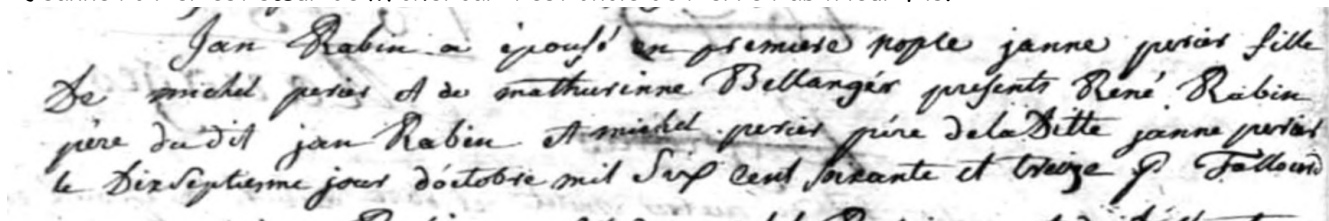 Jan Rabin a épousé en premiere nopse janne perier fille
De michel perier et de mathurinne Bellanger presents René Rabin
père du dit jan Rabin et michel perier père de la Ditte janne perier
le Dixseptieme jour d'octobre mil Six Cent soixante et treize